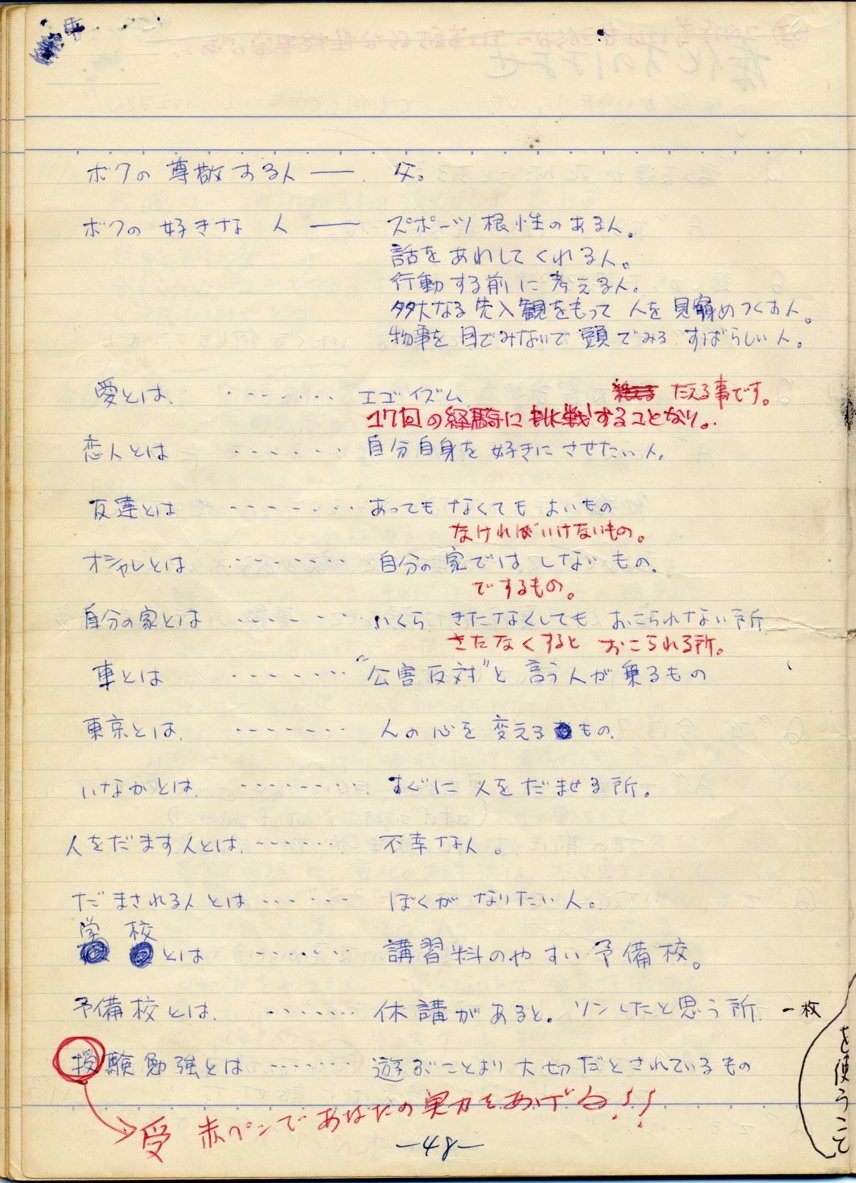 ボクの尊敬する人 ―― 父。
ボクの好きな人 ―― スポーツ根性のある人。
話をあわしてくれる人。
行動する前に考える人。
多大なる先入観をもって人を見つめつくす人。
物事を目でみないで頭でみるすばらしい人。
愛とは、 ・・・・・・・ エゴイズム たえる事です。
17回の経験に挑戦することなり。
恋人とは ・・・・・・ 自分自身を好きにさせたい人。
友達とは ・・・・・・・ あってもなくてもよいもの
なければいけないもの。
オシャレとは ・・・・・・・・ 自分の家ではしないもの、
でするもの。
自分の家とは ・・・・・・・ いくらきたなくしてもおこられない所
きたなくするとおこられる所。
車とは ・・・・・・・ "公害反対"と言う人が乗るもの
東京とは、 ・・・・・・・ 人の心を変えるもの、
いなかとは、 ・・・・・・・・ すぐに人をだませる所。
人をだます人とは、・・・・・・ 不幸な人。
だまされる人とは ・・・・・ ぼくがなりたい人。
学校とは ・・・・・・ 講習料のやすい予備校。
予備校とは、 ・・・・・・・ 休講があると。ソンしたと思う所、
授験勉強とは ・・・・・・ 遊ぶことより大切だとされているもの
受 赤ペンであなたの実力をあげる!!
一枚
を使うこと
―48―